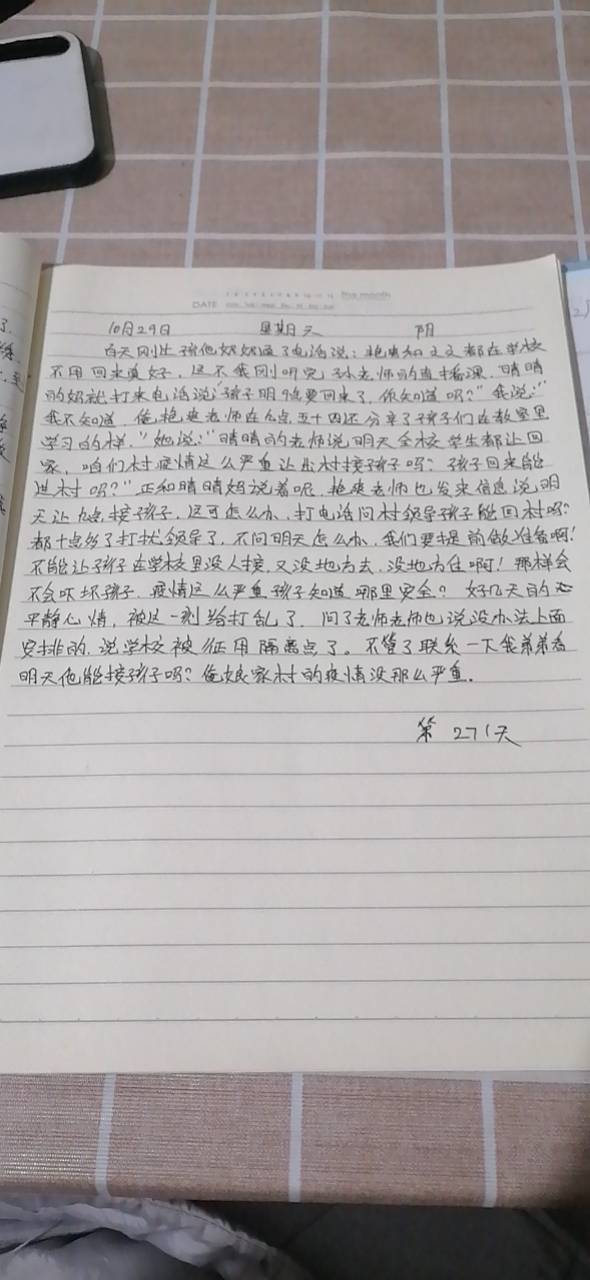 DATE
10月29日 星期天 阴
白天刚让孩他奶奶通了电话说:艳爽和文文都在学校
不用回来真好,这不我刚听完孙老师的直播课,晴晴
的妈就打来电话说"孩子明晚要回来了,你知道吗?"我说:"
我不知道,俺艳爽老师在八点五十四还分享了孩子们在教室里
学习的样."她说:"晴晴的老师说明天全校学生都让回
家,咱们村疫情这么严重让出村接孩子吗?孩子回来能
进村吗?"正和晴晴妈说着呢,艳爽老师也发来信息说明
天让九点接孩子,这可怎么办,打电话问村领导孩子能回村吗?
都十点多了打扰领导了,不问明天怎么办,我们要提前做准备啊!
不能让孩子在学校里没人接,又没地方去,没地方住啊!那样会
不会吓坏孩子,疫情这么严重孩子知道哪里安全?好几天的
平静心情,被这一刻给打乱了,问了老师老师也说没办法上面
安排的,说学校被征用隔离点了。不管了联系一下我弟弟看
明天他能接孩子吗?俺娘家村的疫情没那么严重.
第271天